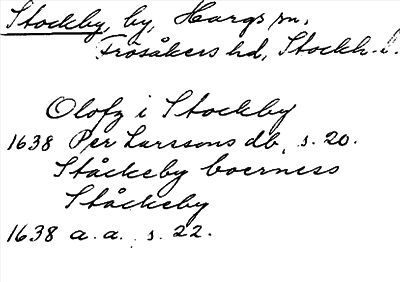 Stockby, by, Hargs sn,
Frösåkers hd, Stockh. l.
Olofz i Stockby
1638 Per Larssons db, s. 20.
Ståckeby boerness
Ståckeby
1638 a. a. s. 22.